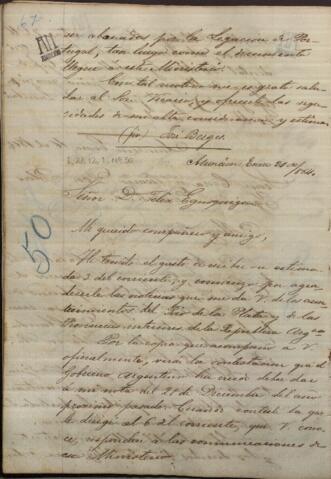 67
ser abonados por la Legacion de Por-
tugal, tan luego como el documento
llegue á este Ministerio.
Con tal motivo me es grato salu-
dar al Sor. , y ofrecerle las segu-
ridades de mi alta consideracion y estima.
(fdo) José Berges.
I, 22, 12, 1, nº 50
Asuncion, Enero 21 de 1864.
Señor D. Felix Egusquiza
50
Mi querido compañero y amigo,
He tenido el gusto de recibir su estima-
da 3 del corriente, y comienzo por agra-
decerle las noticias que me da V. de los acon-
tecimientos del Rio de la Plata, y de las
Provincias interiores de la Republica Argna
Por la copia que acompaño á V.
oficialmente, verá la contestacion que el
Gobierno Argentino ha dado
á mi nota del 21 de Diciembre del año
proximo pasado. Cuando contesté la que
le dirigí el 6 del corriente, que V. cono-
ce, responderé á las comunicaciones de
ese Ministerio.